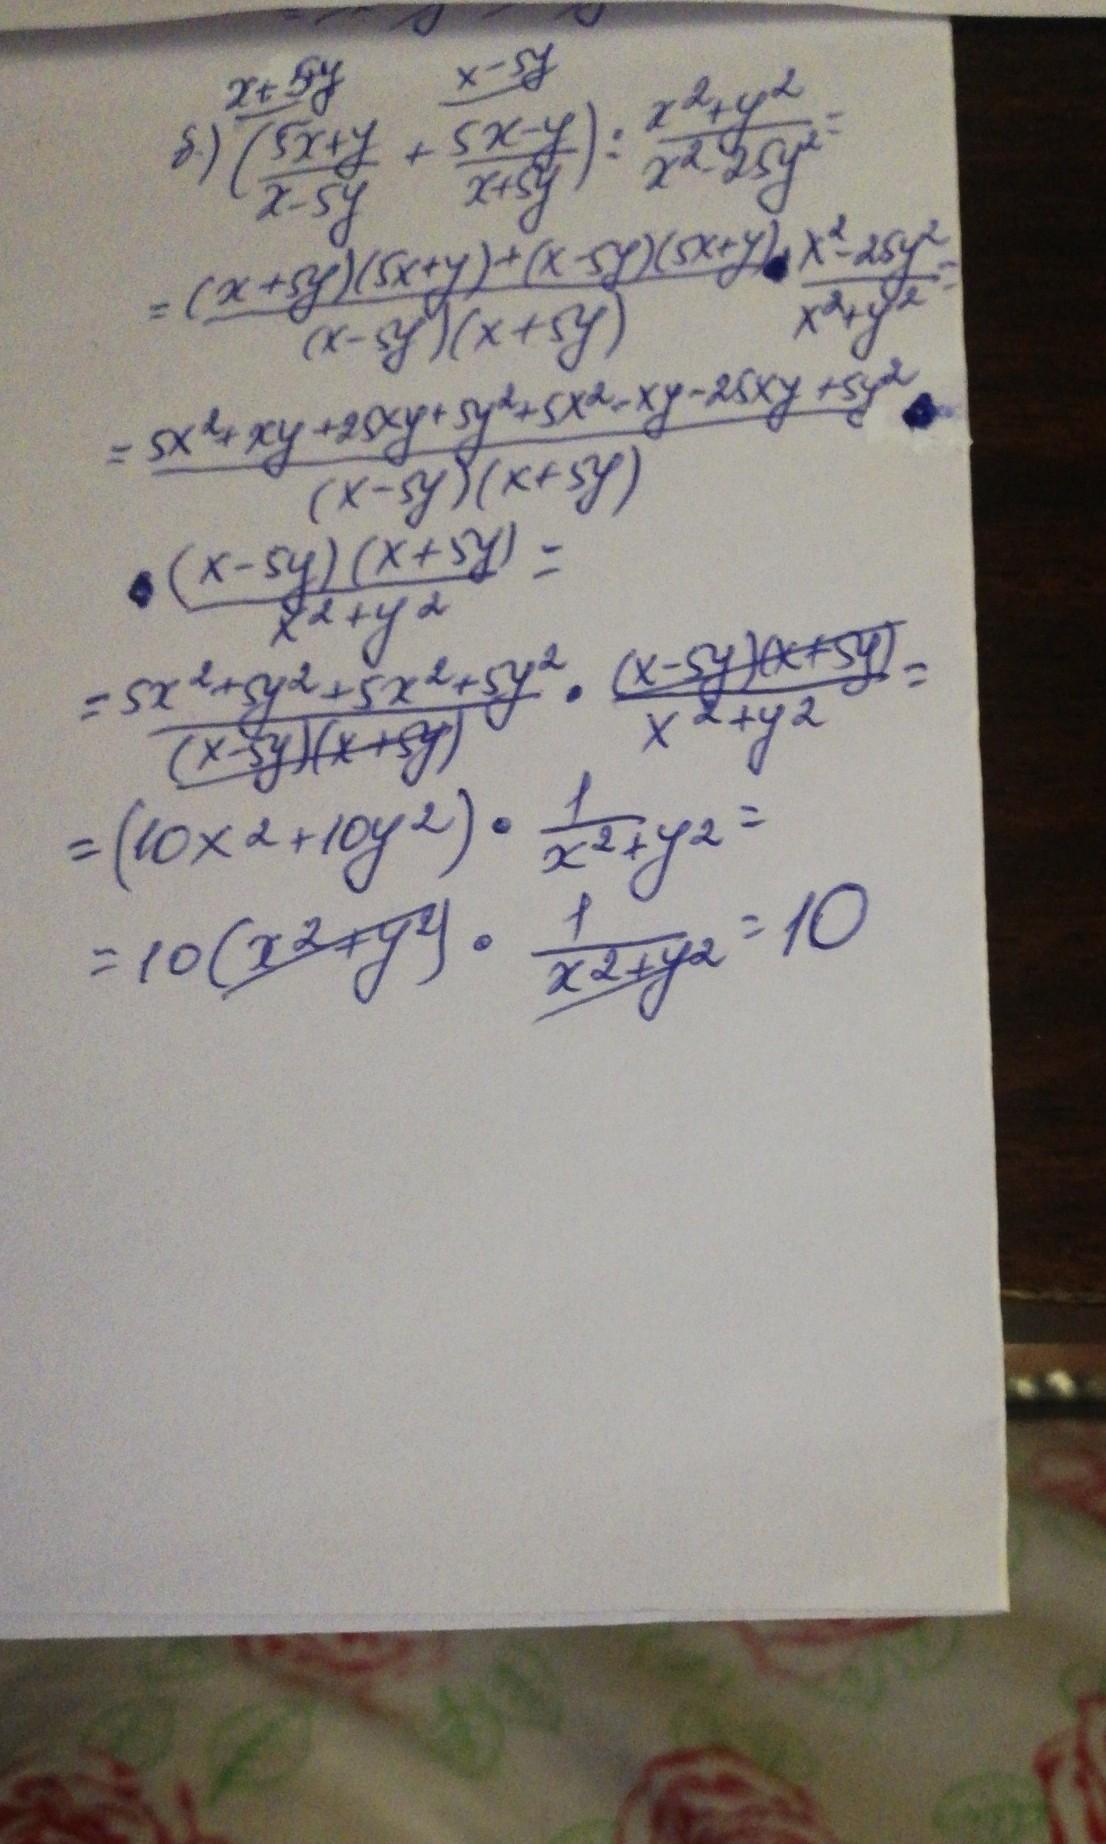 x+5y x-5y
б.) (5x+y/x-5y + 5x-y/x+5y) : x²+y²/x²-25y² =
= (x+5y)(5x+y)+(x-5y)(5x+y)/(x-5y)(x+5y) • x²-25y²/x²+y² =
= 5x²+xy+25xy+5y²+5x²-xy-25xy+5y²/(x-5y)(x+5y) •
• (x-5y)(x+5y)/x²+y² =
= 5x²+5y²+5x²+5y²/(x-5y)(x+5y) • (x-5y)(x+5y)/x²+y² =
= (10x²+10y²) • 1/x²+y² =
= 10(x²+y²) • 1/x²+y² = 10